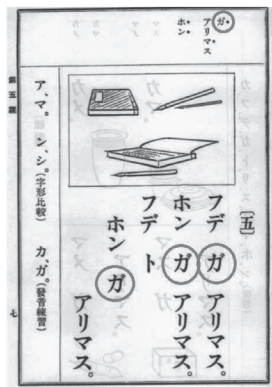 ガ
アリマス
ホン
〔五〕
フデ ガ アリマス。
ホン ガ アリマス。
フデ ト
ホン ガ アリマス。
ア、マ。 ン、シ。(字形比較) カ、ガ。(發音練習)
第五課
七